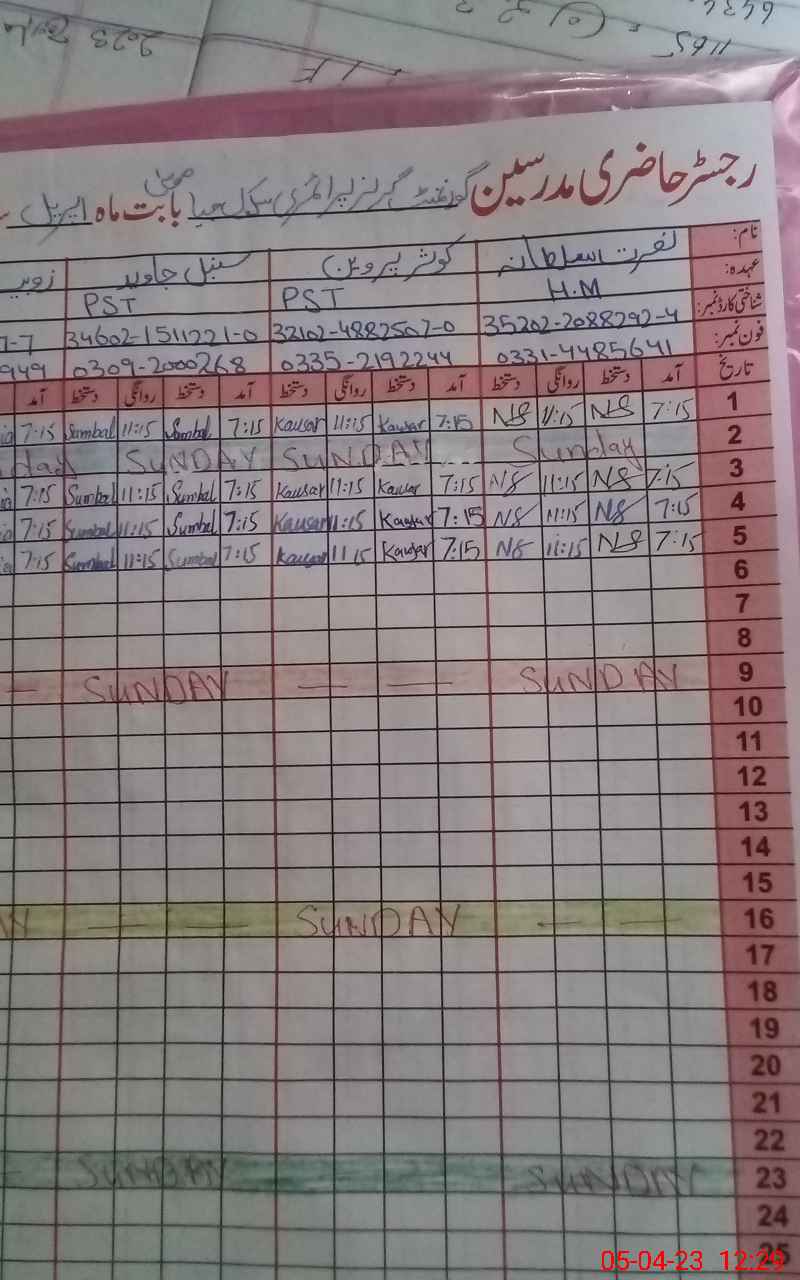 6434
1165
2023
رجسٹر حاضری مدرسین گورنمنٹ گرلز پرائمری سکول بابت ماہ اپریل
نام: نصرت سلطانہ کوثر پروین سنبل جاوید
عہدہ: H.M PST PST
شناختی کارڈ نمبر: 35202-2088292-4 32102-4882507-0 34602-1511221-0 7-7
فون نمبر: 0331-4485641 0335-2192244 0309-2000268 949
تاریخ آمد دستخط روانگی دستخط آمد دستخط روانگی دستخط آمد دستخط روانگی دستخط آمد
1 7:15 NS 11:15 NS 7:15 Kausar 11:15 Kausar 7:15 Sumbal 11:15 Sumbal 7:15
2 Sunday SUNDAY SUNDAY day
3 7:15 NS 11:15 NS 7:15 Kausar 11:15 Kausar 7:15 Sumbal 11:15 Sumbal 7:15
4 7:15 NS 11:15 NS 7:15 Kausar 11:15 Kausar 7:15 Sumbal 11:15 Sumbal 7:15
5 7:15 NS 11:15 NS 7:15 Kausar 11 15 Kausar 7:15 Sumbal 11:15 Sumbal 7:15
6
7
8
9 SUNDAY — — SUNDAY —
10
11
12
13
14
15
16 — — SUNDAY — — AY
17
18
19
20
21
22
23 SUNDAY SUNDAY
24
25
05-04-23 12:29